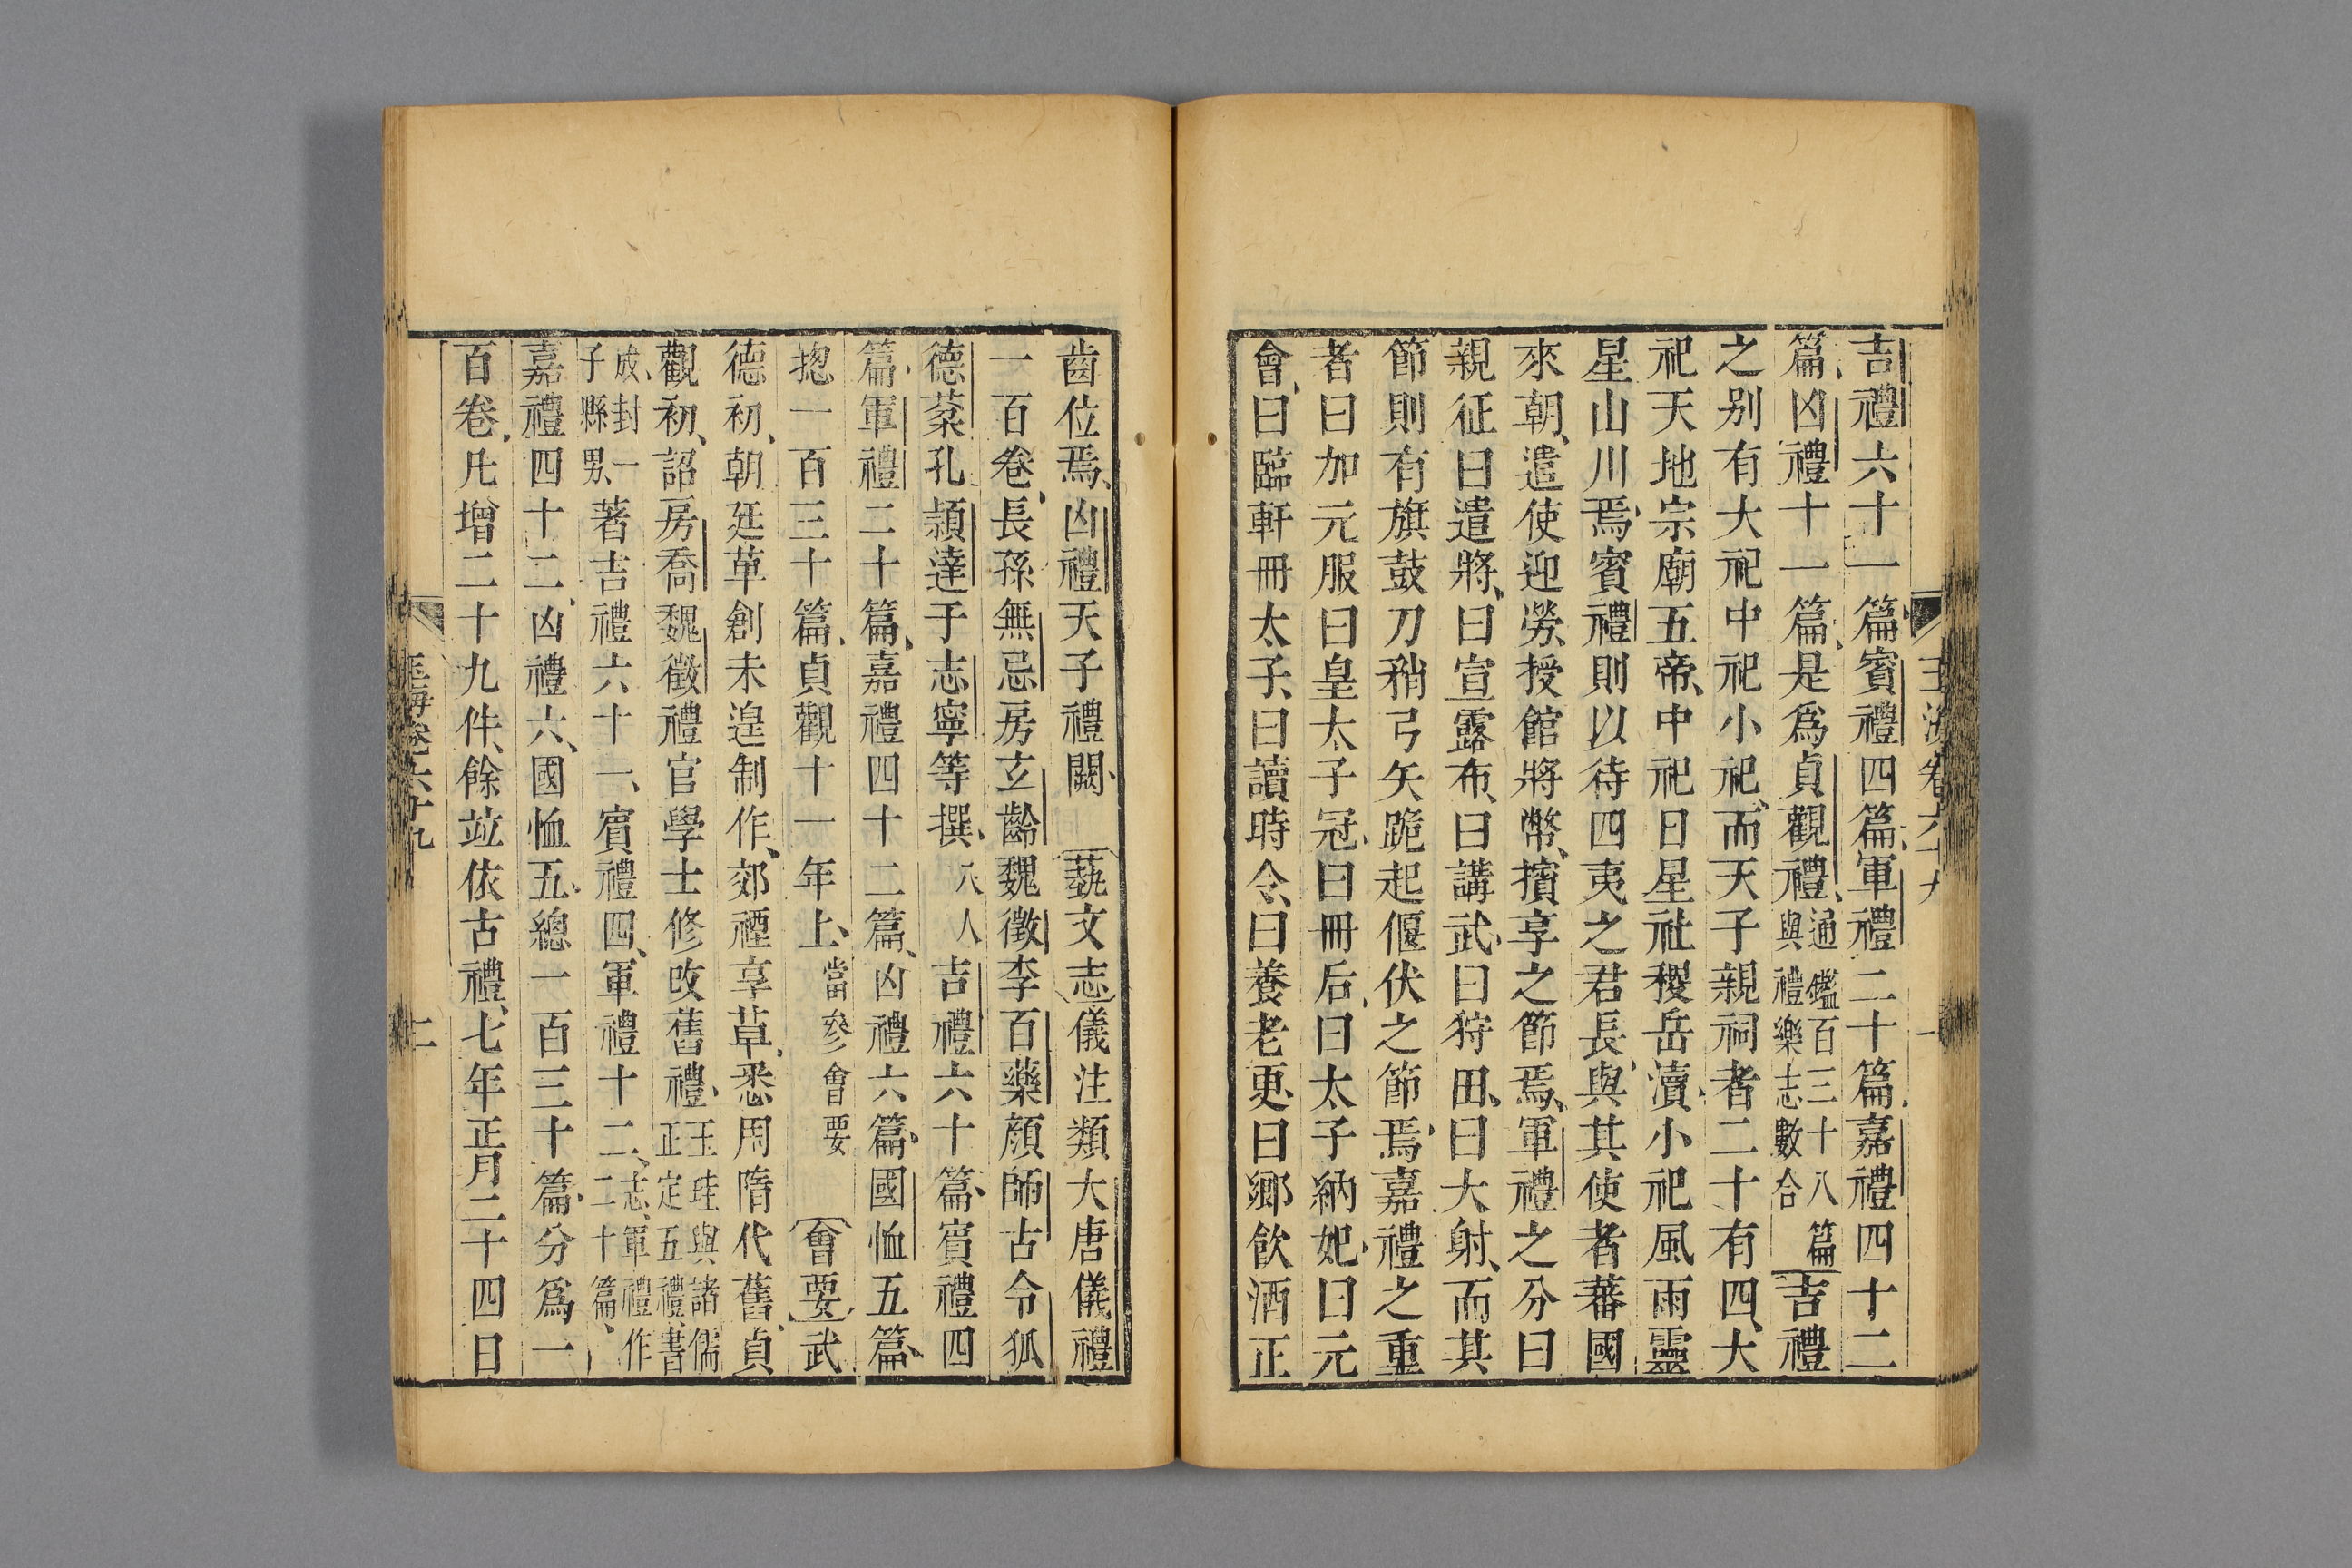 吉禮六十一篇賓禮四篇軍禮二十篇嘉禮四十二
篇凶禮十一篇是爲貞觀禮通鑑百三十八篇與禮樂志數合吉禮
之別有大祀中祀小祀而天子親祠者二十有四大
祀天地宗廟五帝中祀日星社稷岳瀆小祀風雨靈
星山川焉賓禮則以待四夷之君長與其使者蕃國
來朝遣使迎勞授館將幣擯享之節焉軍禮之分曰
親征曰遣將曰宣露布曰講武曰狩田曰大射而其
節則有旗鼓刀矟弓矢跪起偃伏之節焉嘉禮之重
者曰加元服曰皇太子冠曰冊后曰太子納妃曰元
會曰臨軒冊太子曰讀時令曰養老更曰鄉飲酒正
齒位焉凶禮天子禮闕藝文志儀注類大唐儀禮
一百卷長孫無忌房玄齡魏徵李百藥顏師古令狐
德棻孔頴達于志寧等撰八人吉禮六十篇賓禮四
篇軍禮二十篇嘉禮四十二篇凶禮六篇國恤五篇
揔一百三十篇貞觀十一年上當參會要會要武
德初朝廷草創未遑制作郊禋享草悉用隋代舊貞
觀初詔房喬魏徵禮官學士修改舊禮王珪與諸儒正定五禮書
成封一子縣男著吉禮六十一賓禮四軍禮十二志軍禮作二十篇
嘉禮四十二凶禮六國恤五總一百三十篇分爲一
百卷凡增二十九件餘竝依古禮七年正月二十四日
玉海卷六十九
二